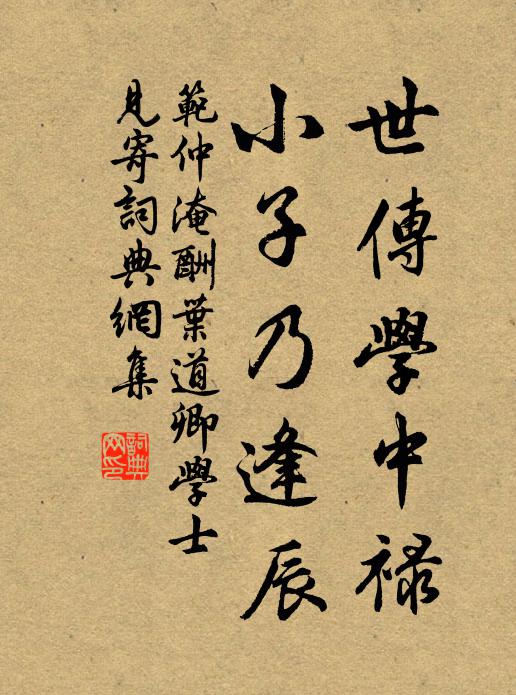 世傳學中禄
小子乃逢辰
範仲淹酬葉道卿學士
見寄詞典網集
詞典网印